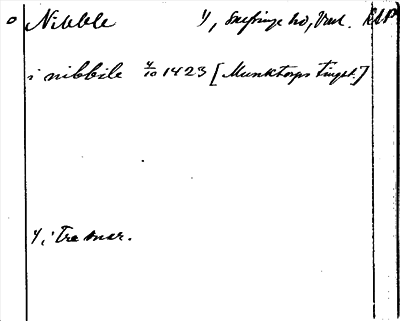 o Nibble Y, Snefringe hd, Vml. RAP
i nibbile 4/10 1423 [Munktorps tingst.]
Y, Tre snar.